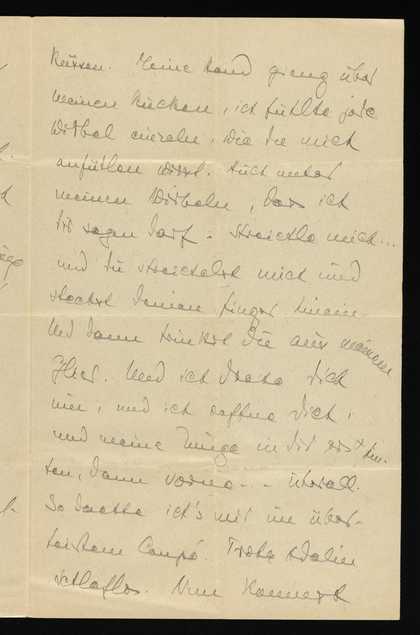 Küssen. Deine Hand gieng über
meinen Rücken, ich fühlte jede
Wirbel einzeln, wie Du mich
anfühlen wirst. Auch unter
meinen Wirbeln, das ich
Dir sagen darf - streichle mich...
und Du streichelst mich und
steckst Deinen Finger hinein.
Und dann trinkst Du aus meinem
Und ich drehe Dich
um, und ich oeffne Dich,
und meine Zunge in Dir erst hin-
ten, dann vorne - - überall.
So dachte ich's mir im über-
heiztem Coupé. Trotz Adalin
schlaflos. Nun kommst